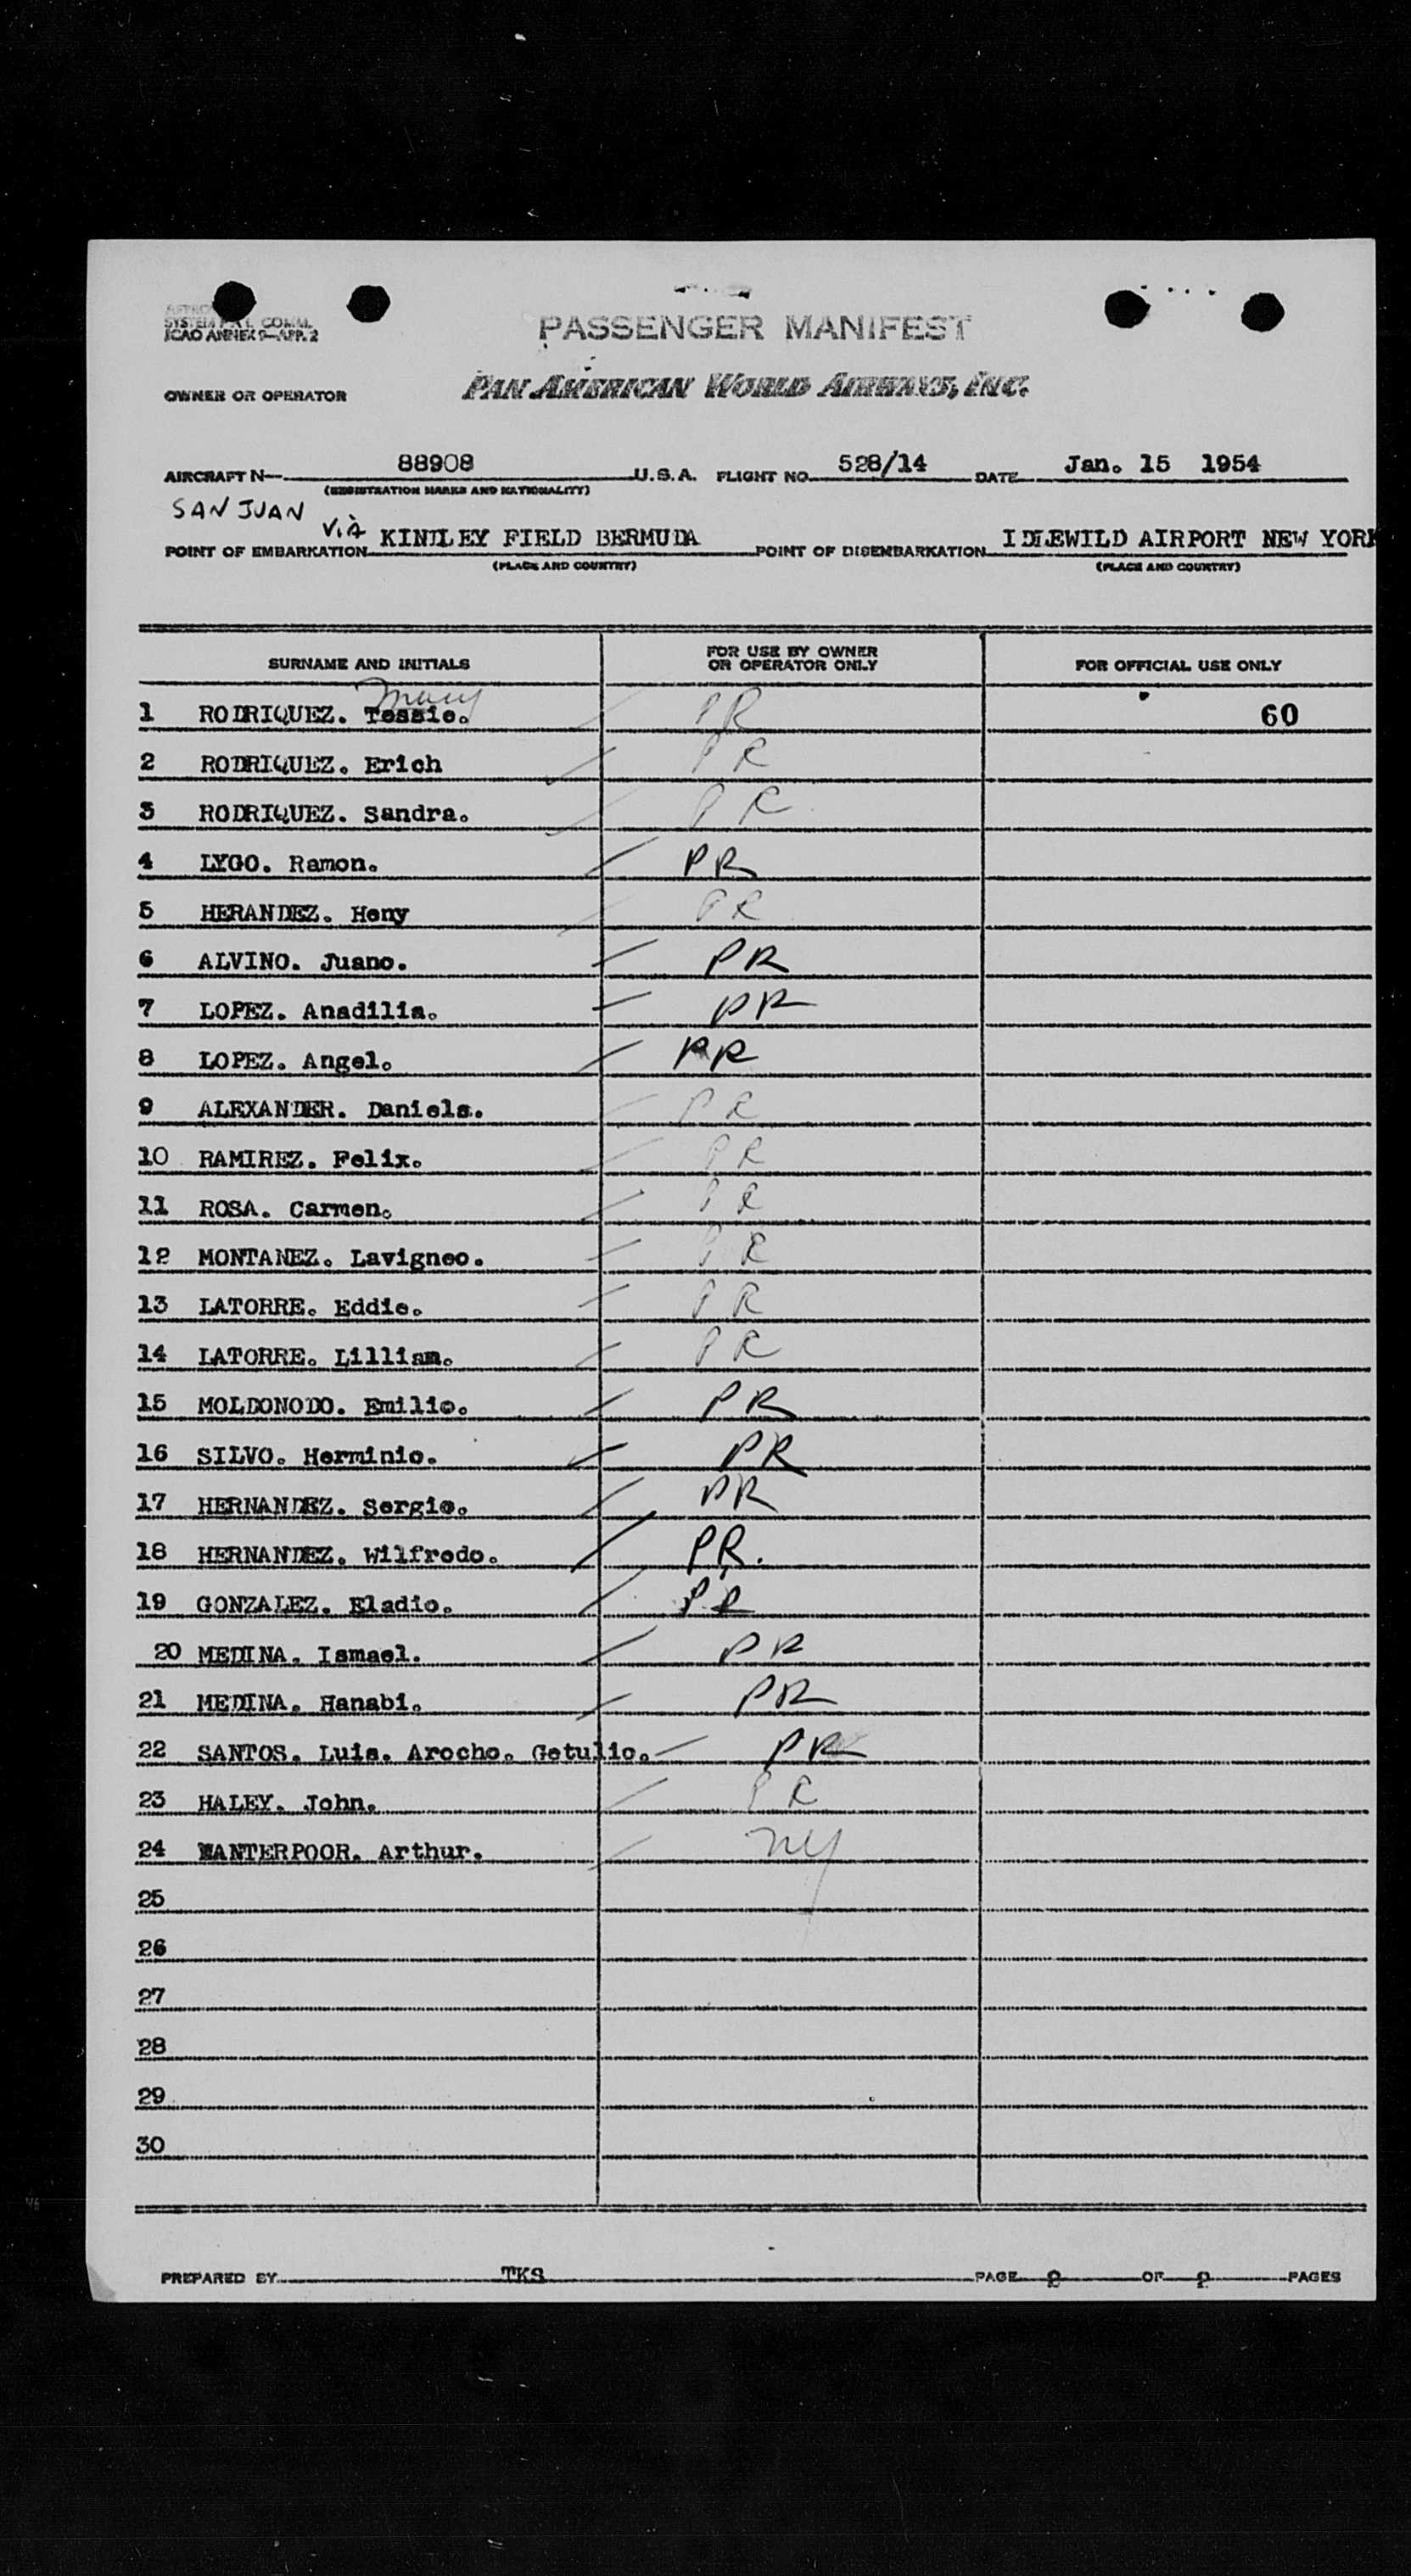 SYSTEM COMM.
ICAO ANNEX 9—APP. 2
PASSENGER MANIFEST
OWNER OR OPERATOR PAN AMERICAN WORLD AIRWAYS, INC.
AIRCRAFT N— 88908 U.S.A. FLIGHT NO. 528/14 DATE Jan. 15 1954
(REGISTRATION MARKS AND NATIONALITY)
SAN JUAN
VIA
POINT OF EMBARKATION KINDLEY FIELD BERMUDA POINT OF DISEMBARKATION IDLEWILD AIRPORT NEW YORK
(PLACE AND COUNTRY) (PLACE AND COUNTRY)
SURNAME AND INITIALS FOR USE BY OWNER OR OPERATOR ONLY FOR OFFICIAL USE ONLY
Mary
1 RODRIQUEZ. Tessie. PR 60
2 RODRIQUEZ. Erich PR
3 RODRIQUEZ. Sandra. PR
4 LYGO. Ramon. PR
5 HERANDEZ. Heny PR
6 ALVINO. Juano. PR
7 LOPEZ. Anadilia. PR
8 LOPEZ. Angel. PR
9 ALEXANDER. Daniels. PR
10 RAMIREZ. Felix. PR
11 ROSA. Carmen. PR
12 MONTANEZ. Lavigneo. PR
13 LATORRE. Eddie. PR
14 LATORRE. Lilliam. PR
15 MOLDONODO. Emilio. PR
16 SILVO. Herminio. PR
17 HERNANDEZ. Sergio. PR
18 HERNANDEZ. Wilfredo. PR.
19 GONZALEZ. Eladio. PR
20 MEDINA. Ismael. PR
21 MEDINA. Hanabi. PR
22 SANTOS. Luis. Arocho. Getulio. PR
23 HALEY. John. PR
24 WANTERPOOR. Arthur. NY
25
26
27
28
29
30
PREPARED BY TKS PAGE 2 OF 2 PAGES